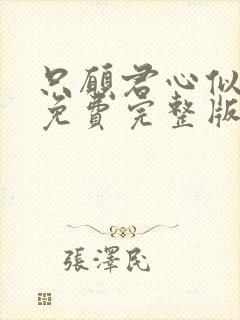 只願君心似
免費完整版
張澤民